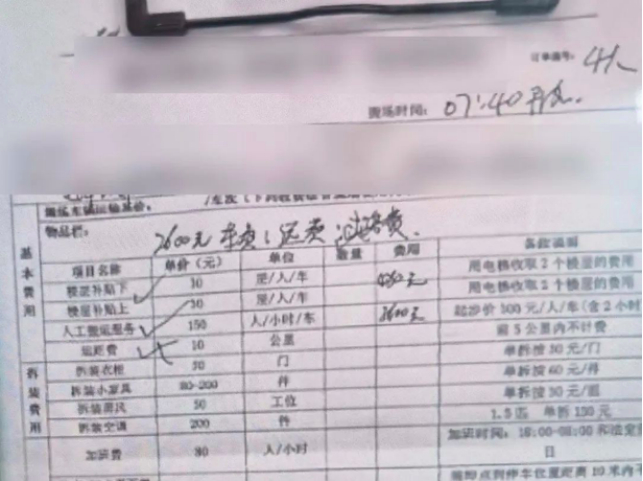 订单编号: 4人
现场时间: 07:40开始.
物品栏: 2600元 车费(运费.过路费.
基本费用
项目名称 单价(元) 单位 数量 费用 备注说明
楼层补贴下 10 层/人/车 480元 用电梯收取2个楼层的费用
楼层补贴上 30 层/人/车 用电梯收取2个楼层的费用
人工搬运服务 150 人/小时/车 3600元 起步价300元/人/车(含2小
远距费 10 公里 前5公里内不计费
拆装费用
拆装衣柜 50 门 单拆按30元/门
拆装小家具 80-200 件 单拆按60元/件
拆装屏风 50 工位 单拆按30元/组
拆装空调 200 件 1.5匹 单拆150元
加班费 80 人/小时 加班时间: 18:00-08:00和法定
日